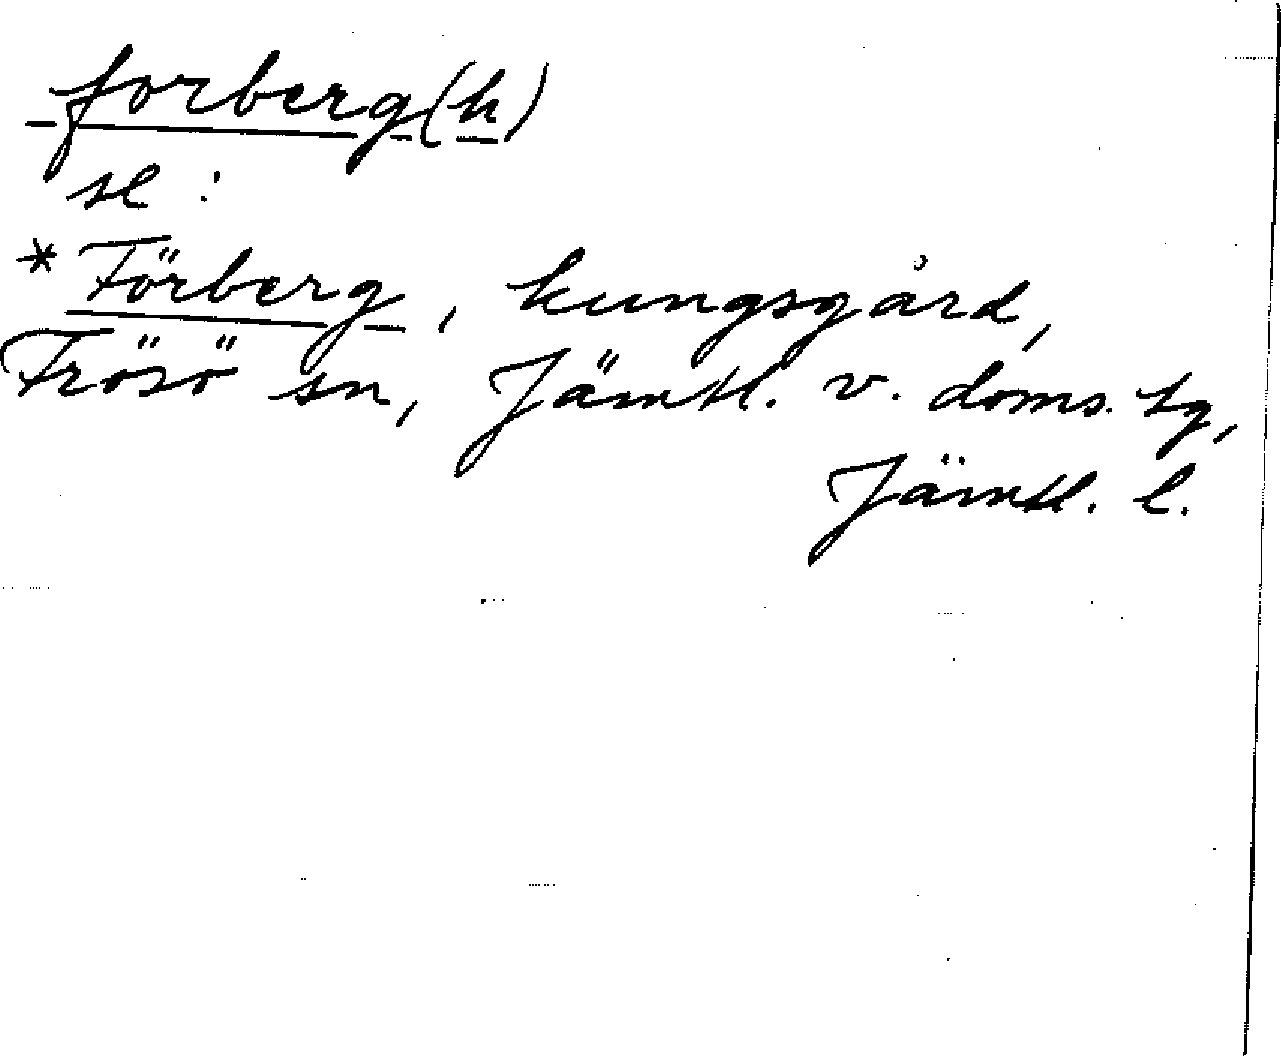 forberg(h)
se :
*Förberg, kungsgård,
Frösö sn, Jämtl. v. doms. tg,
Jämtl. l.